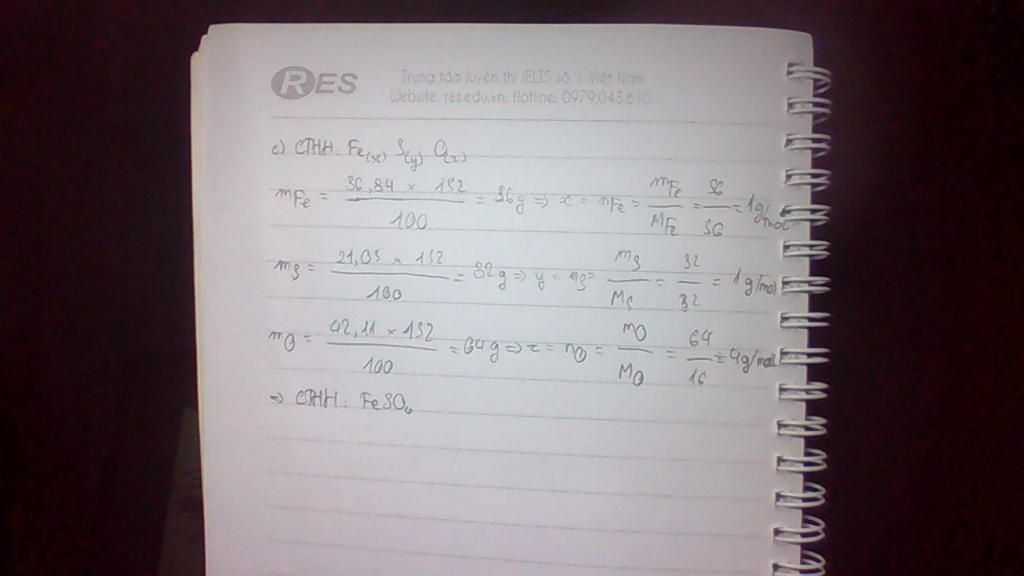 RES
Trung tâm luyện thi IELTS số 1 Việt Nam
Website: res.edu.vn; Hotline: 0979.043.610
c) CTHH: Fe(x) S(y) O(z)
mFe = 36,84 × 152 / 100 = 56g => x = nFe = mFe / MFe = 56 / 56 = 1g/mol
mS = 21,05 × 152 / 100 = 32g => y = nS = mS / MS = 32 / 32 = 1g/mol
mO = 42,11 × 152 / 100 = 64g => z = nO = mO / MO = 64 / 16 = 4g/mol
=> CTHH: FeSO4